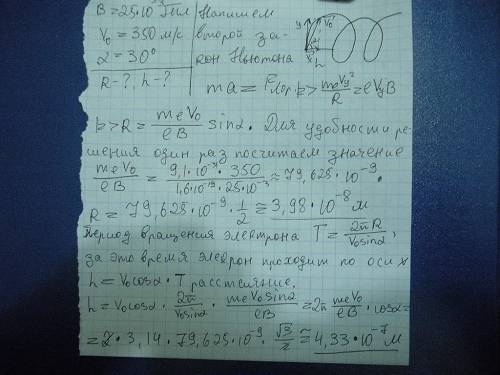 B = 25·10⁻³ Тл | Напишем
V₀ = 350 м/с | второй за-
α = 30° | кон Ньютона
R - ?, h - ?
ma = Fлор => mV₀y²/R = eVyB
=> R = meV₀/eB sinα. Для удобности ре-
шения один раз посчитаем значение
meV₀/eB = 9,1·10⁻³¹·350/1,6·10⁻¹⁹·25·10⁻³ ≈ 79,625·10⁻⁹.
R = 79,625·10⁻⁹·1/2 ≅ 3,98·10⁻⁸ м
Период вращения электрона T = 2πR/V₀sinα,
за это время элеврон проходит по оси x
h = V₀cosα·T расстояние,
h = V₀cosα · 2π/V₀sinα · meV₀sinα/eB = 2π meV₀/eB · cosα =
= 2·3,14·79,625·10⁻⁹·√3/2 ≅ 4,33·10⁻⁷ м